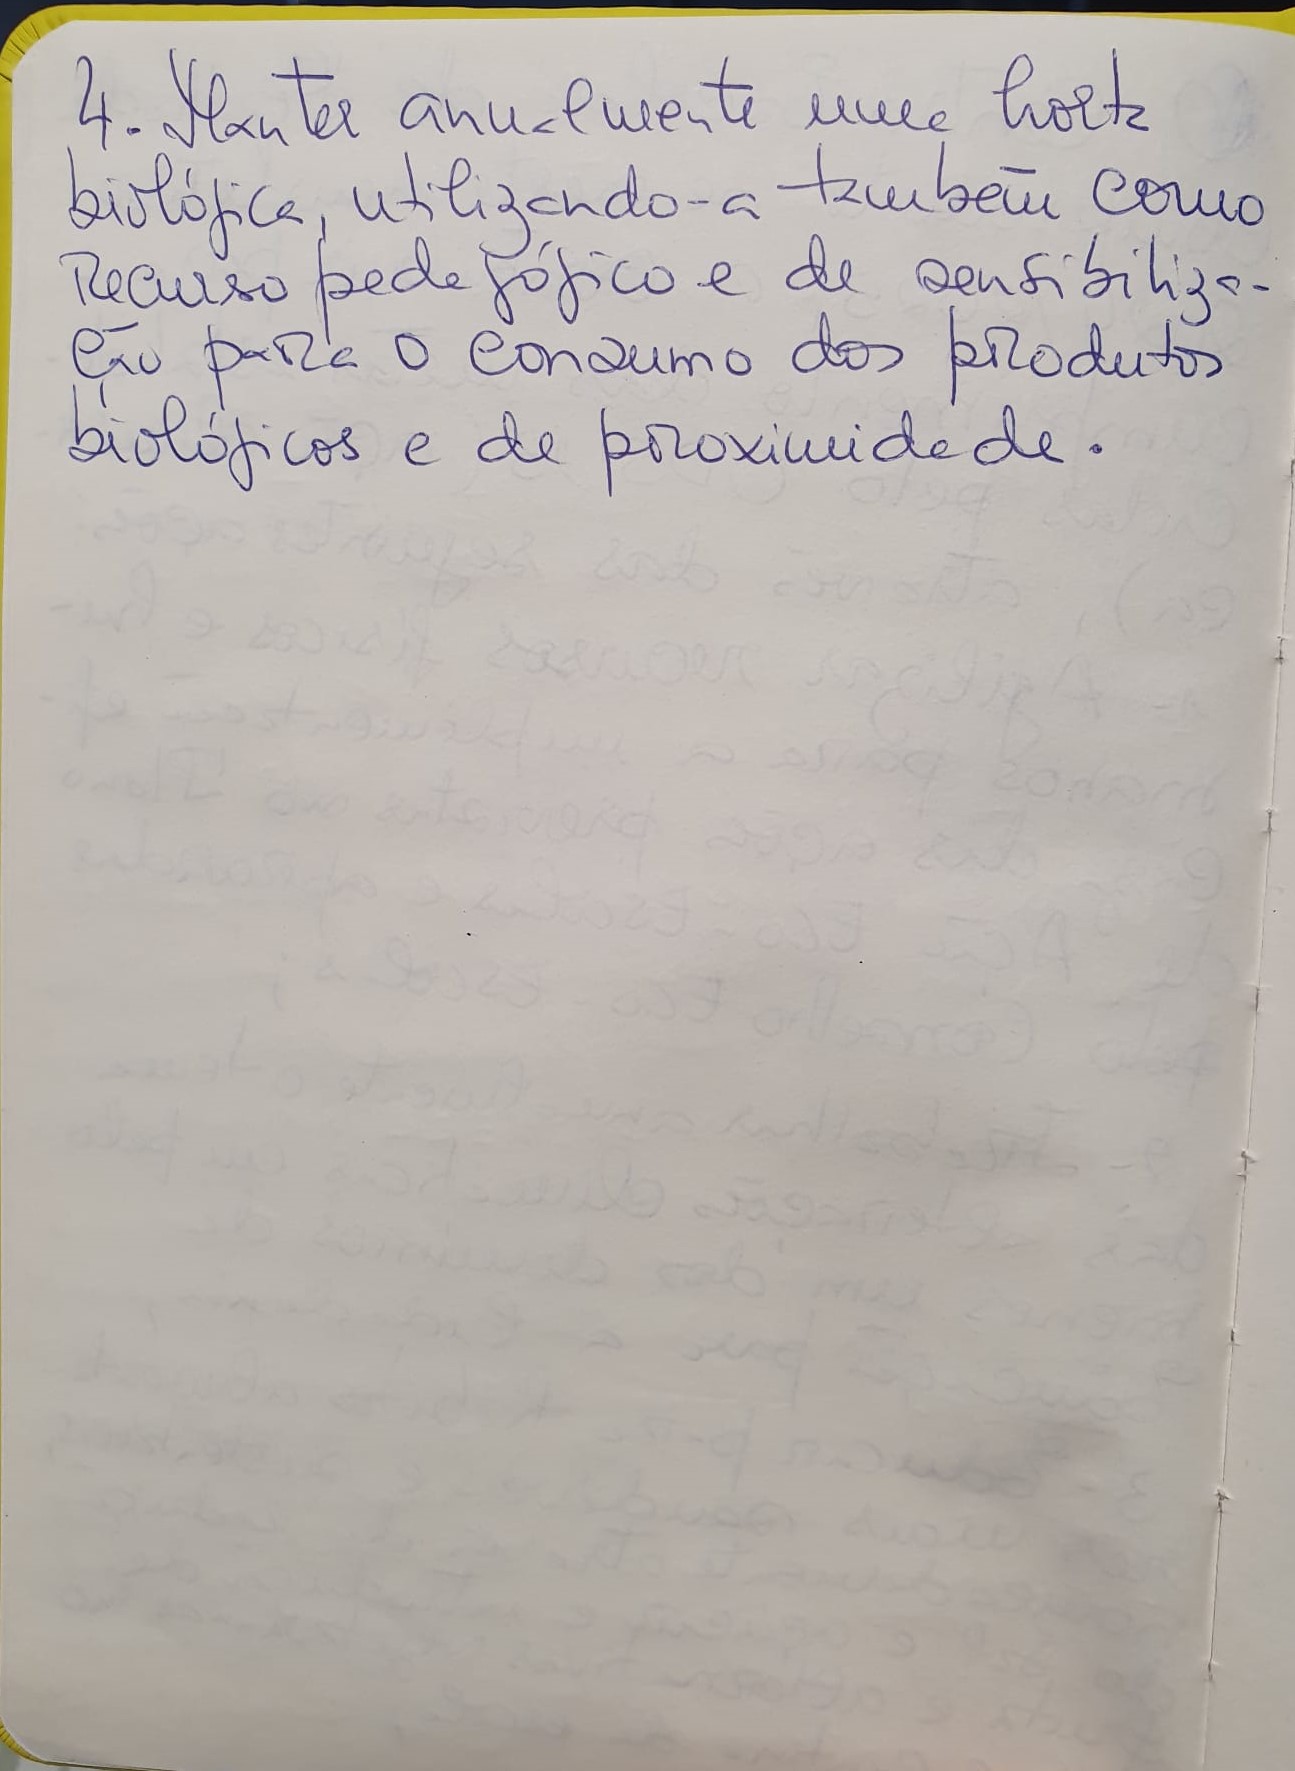 4. Manter anualmente uma horta
biológica, utilizando-a também como
recurso pedagógico e de sensibiliza-
ção para o consumo dos produtos
biológicos e de proximidade.